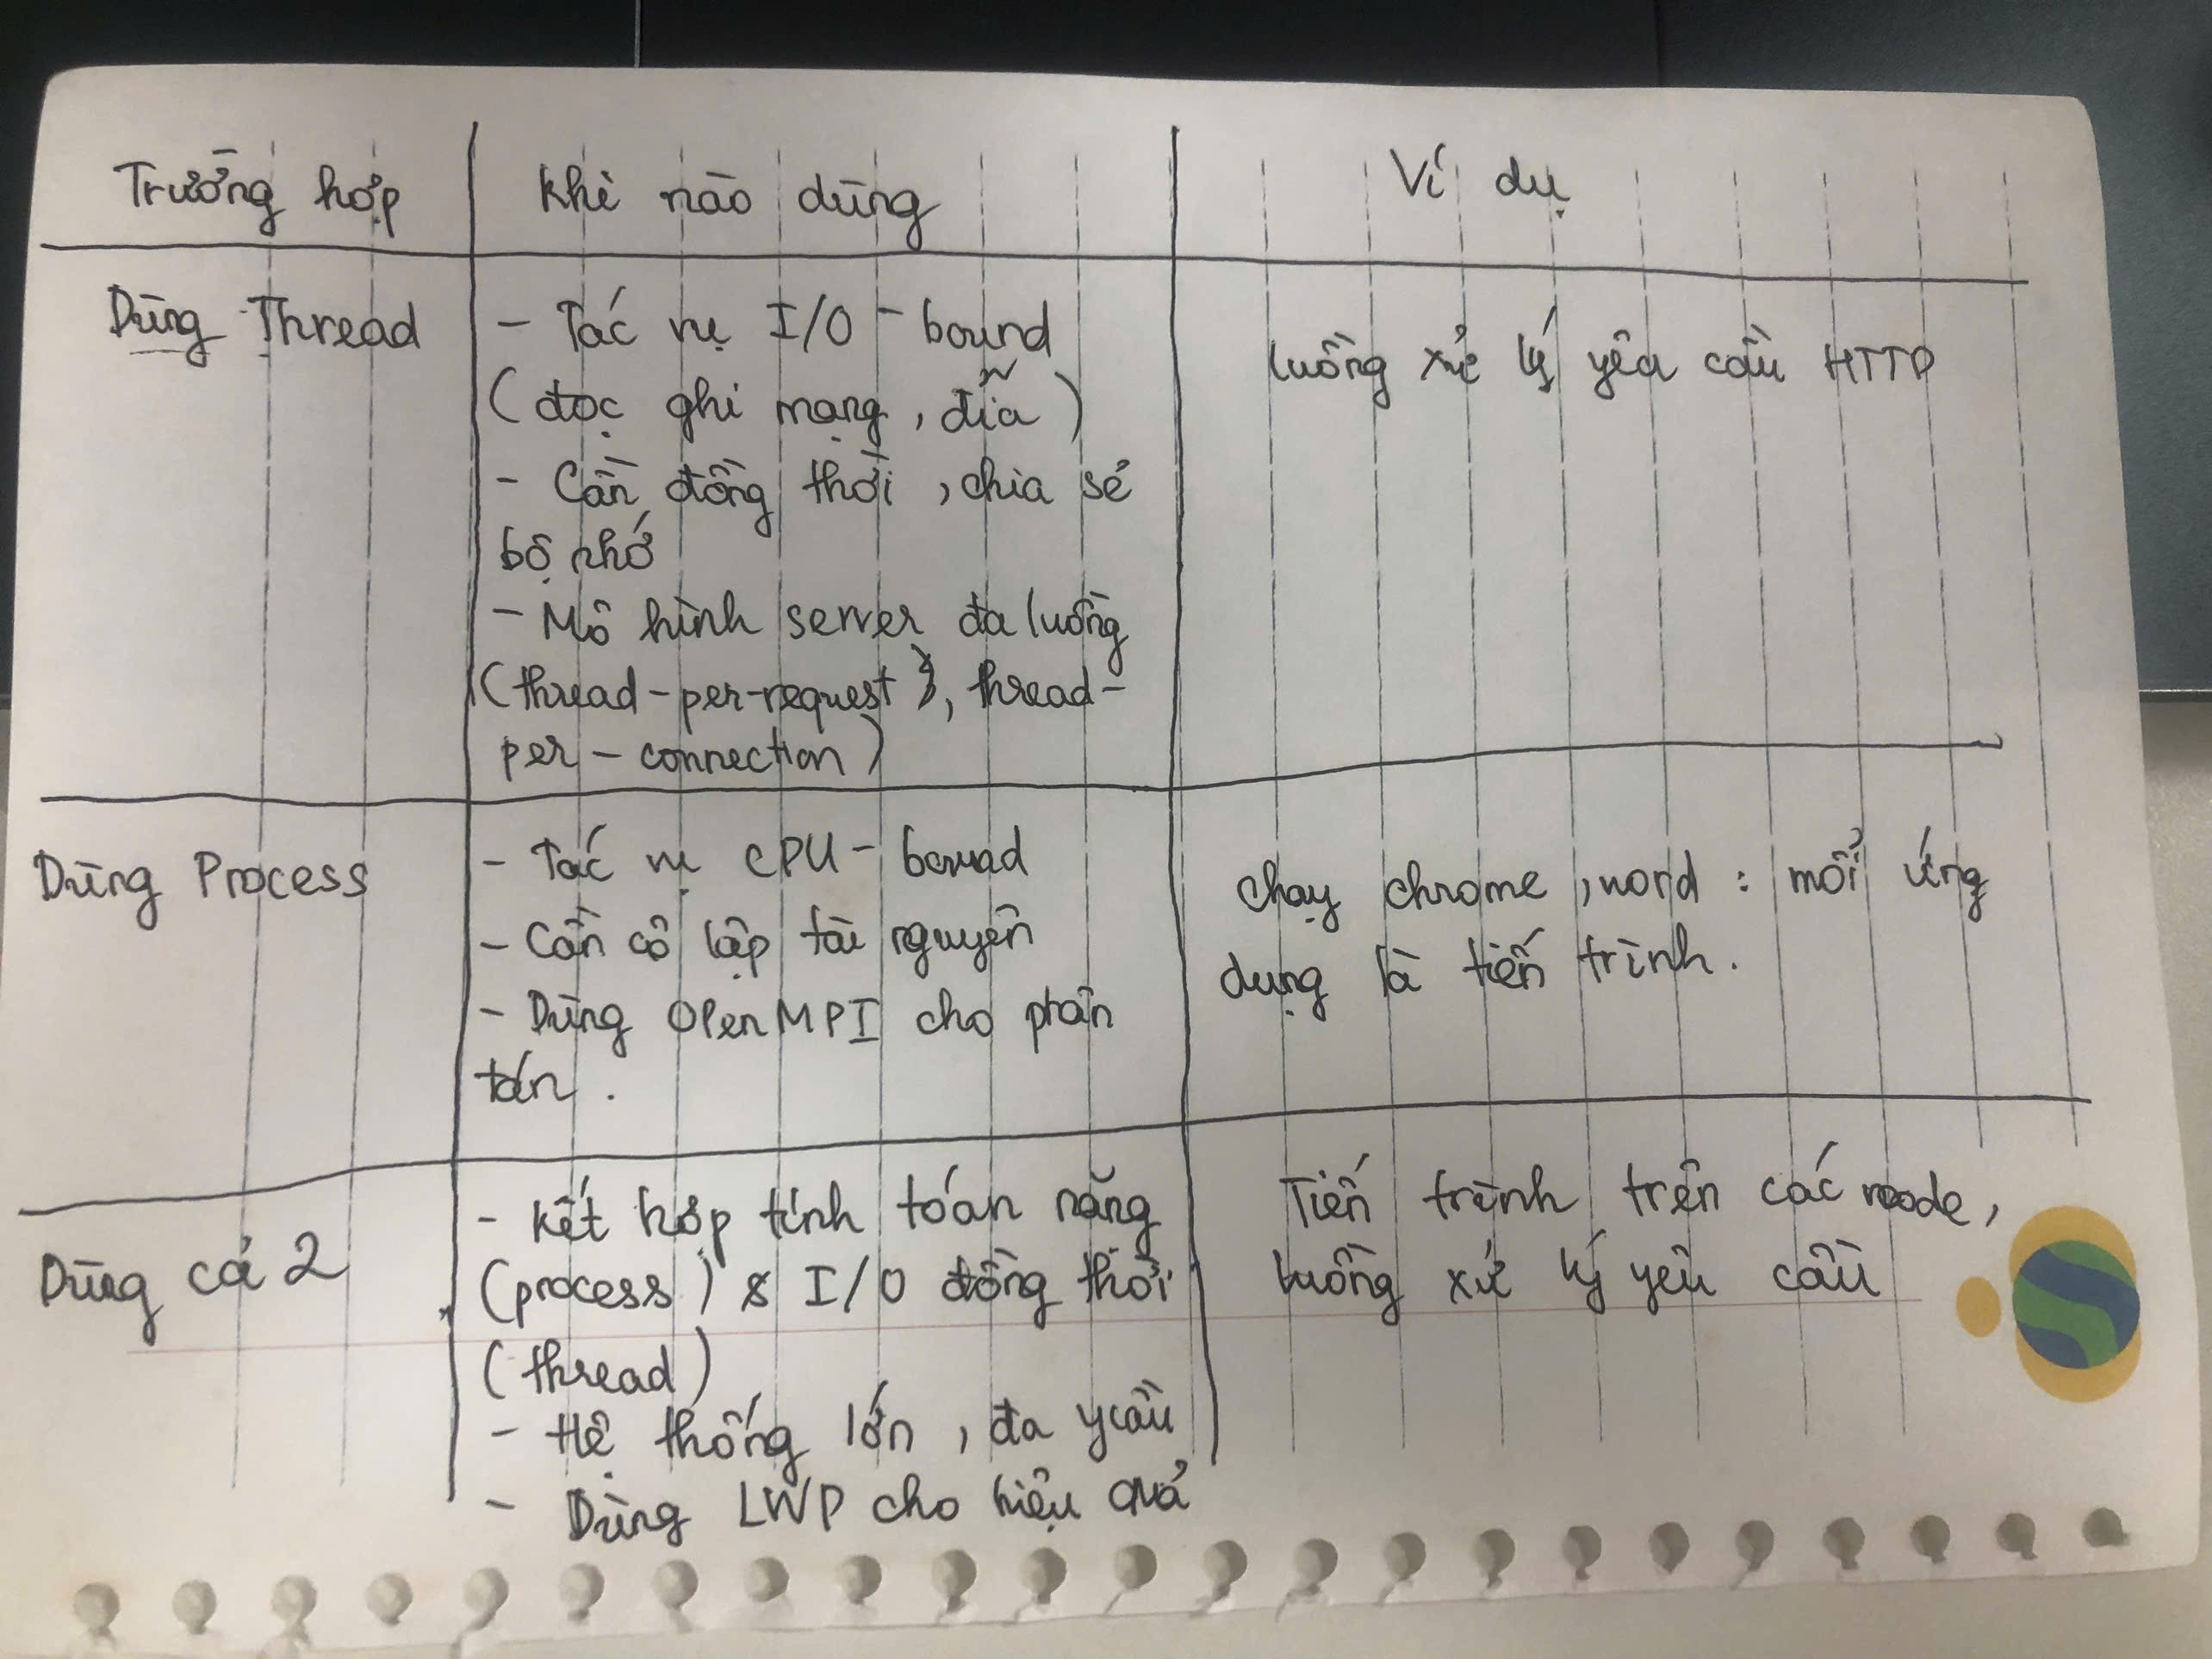 Trường hợp
Khi nào dùng
Ví dụ
Dùng Thread
- Tác vụ I/O - bound
(đọc ghi mạng, đĩa)
- Cần đồng thời, chia sẻ
bộ nhớ
- Mô hình server đa luồng
(thread-per-request), thread-
per-connection)
luồng xử lý yêu cầu HTTP
Dùng Process
- Tác vụ CPU - bound
- Cần cô lập tài nguyên
- Dùng OpenMPI cho phân
tán.
chạy chrome, word : mỗi ứng
dụng là tiến trình.
Dùng cả 2
- Kết hợp tính toán nặng
(process) & I/O đồng thời
(thread)
- Hệ thống lớn, đa ycầu
- Dùng LWP cho hiệu quả
Tiến trình trên các node,
luồng xử lý yêu cầu